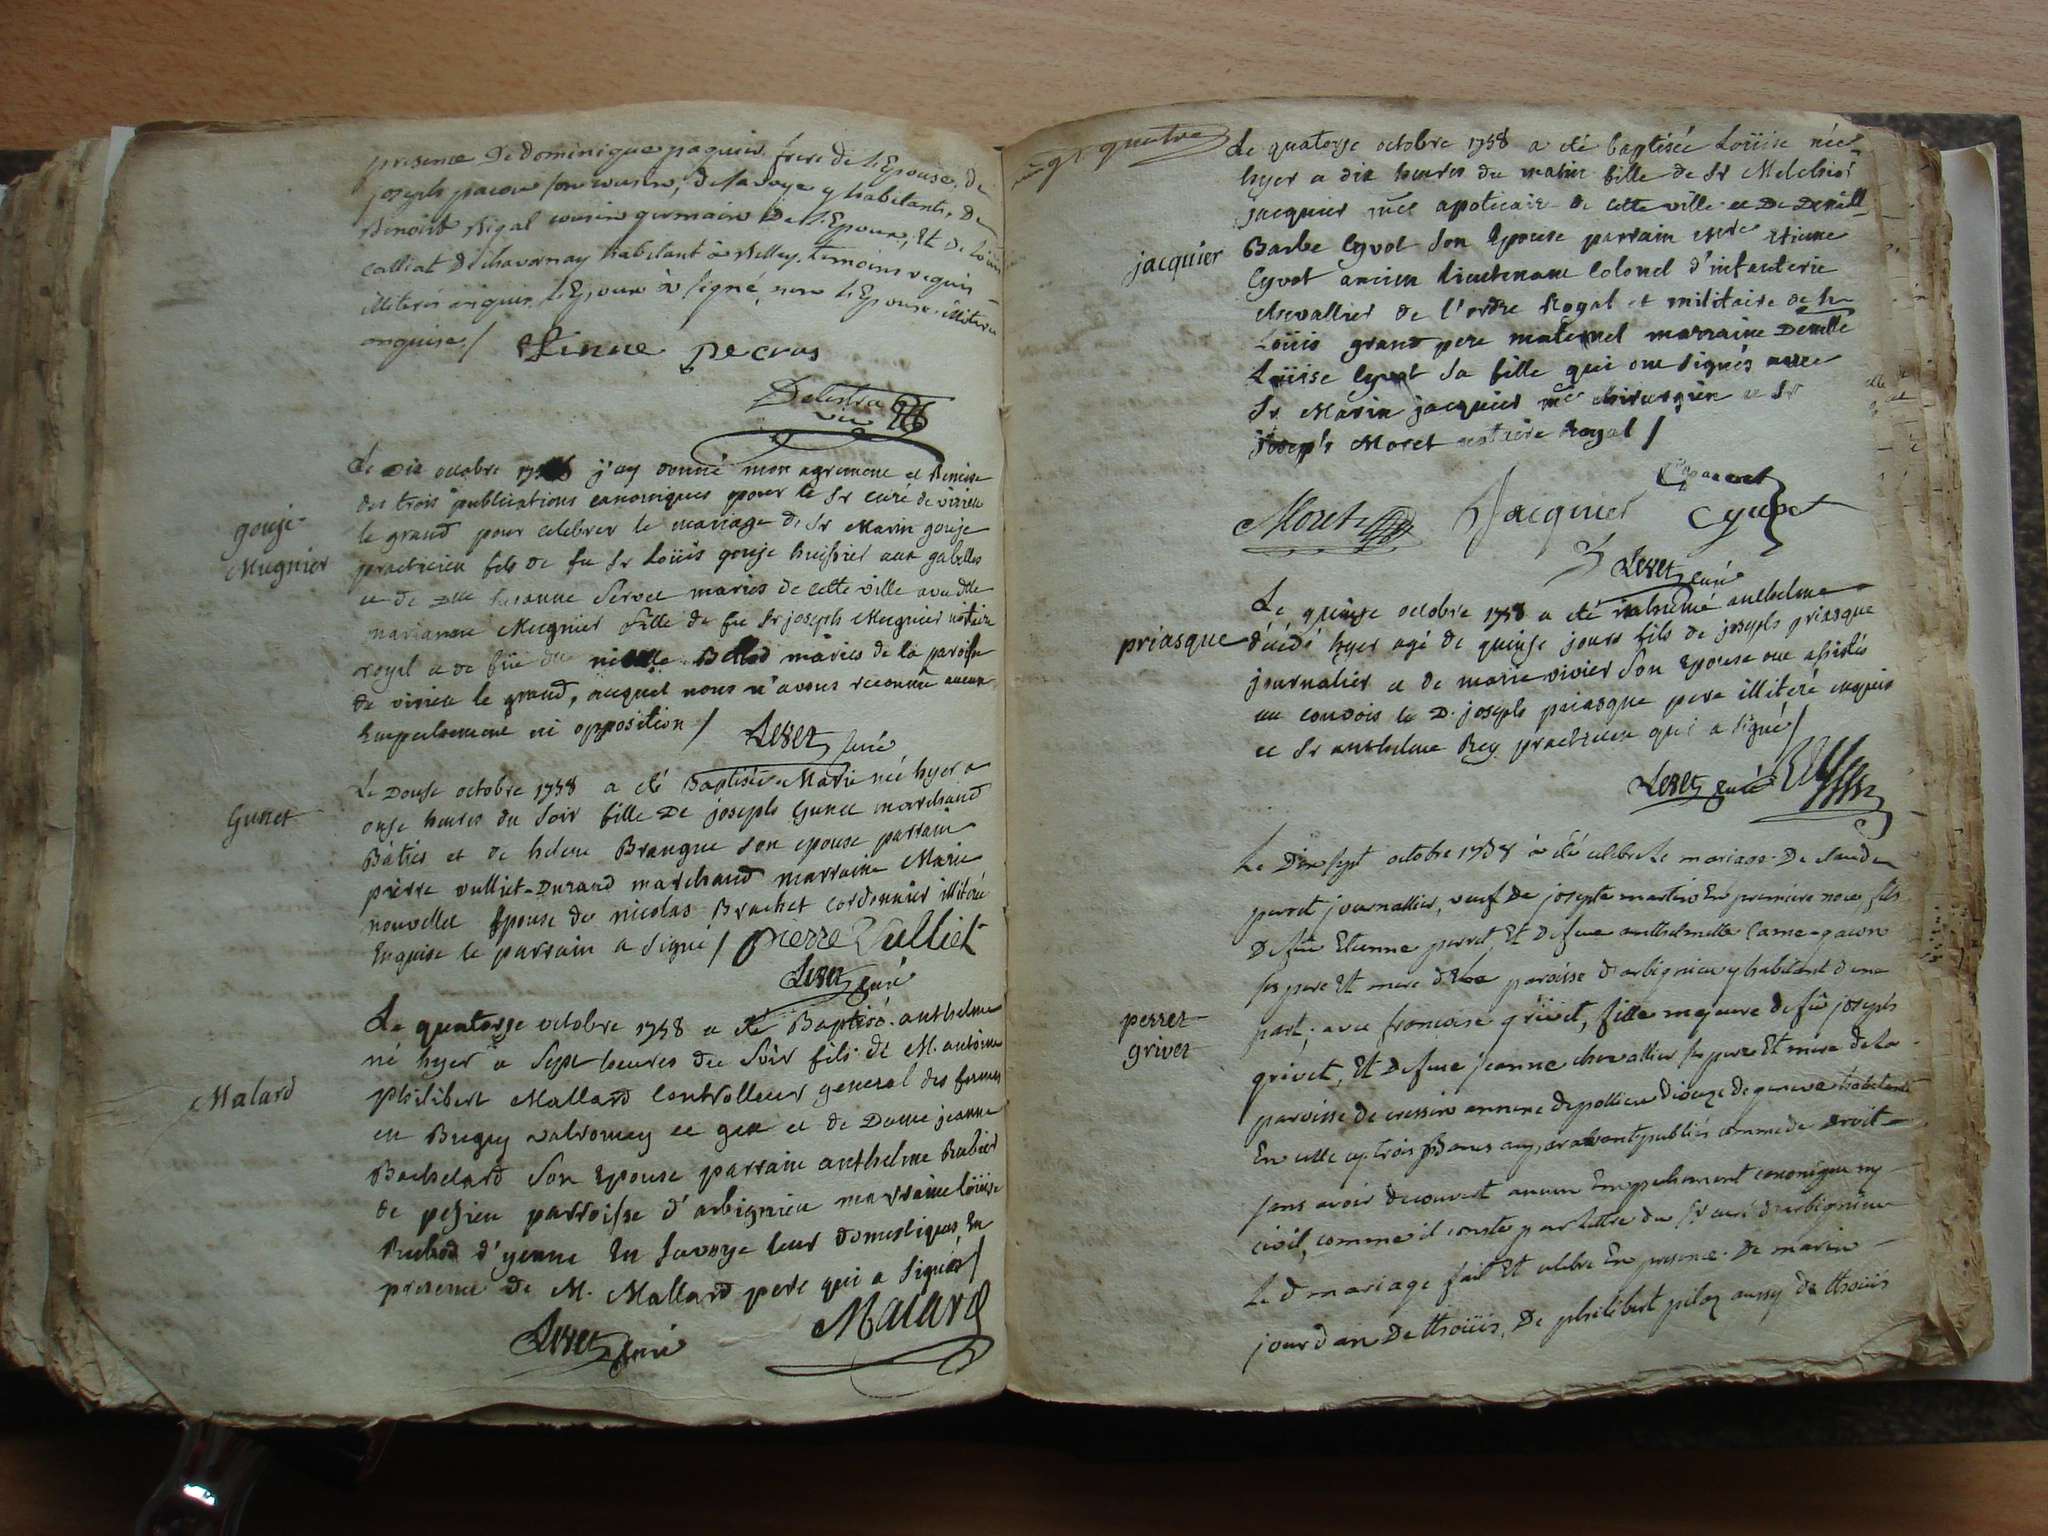 presence De dominique paquin frere de l'Epouse, de
joseph pacou son cousin, de savoye y habitants, De
Benoist Rigal cousin germain De l'Epoux, Et de Loüis
calliat De chavornay habitant à Belley, temoins requis
illiterés enquis l'Epoux à signé, non l'Epouse illiteré
enquise /
pecrus
Delestra
vic
gouje
Mugnier
Le Dix octobre j'ay donné mon agrement et Remise
des trois publications canoniques pour le Sr curé de virieu
le grand pour celebrer le mariage de Sr Marin gouje
practicien fils de fu Sr Loüis gouje huissier aux gabelles
et de Dlle susanne Servet mariés de cette ville avec dlle
marianne Mugnier fille de fu Sr joseph Mugnier notaire
royal et de füe dlle mariés de la paroisse
de virieu le grand, auquel nous n'avons reconnu aucun
Empechement ni opposition / curé
Gunet
Le Douse octobre 1758 a eté Baptisée Marie née hyer a
onse heures du soir fille De joseph Gunet marchand
Bâtier et de helene Brangue son epouse parrain
pierre vulliet-Durand marchand marraine Marie
nouvellet Epouse de nicolas Brachet cordonnier illiterée
Enquise le parrain a signé / pierre Vulliet
curé
Malard
Le quatorse octobre 1758 a eté Baptisé anthelme
né hyer a sept heures du soir fils de M. antoine
philibert Mallard Controlleur general des fermes
en Bugey valromey et gex et de Dame jeanne
Bachelard son Epouse parrain anthelme Rubier
de pesieu parroisse d'arbignieu marraine loüise
Rubod d'yenne En savoye leur domestiques, En
presence de M. Mallard pere qui a signé /
curé Malard
vingt quatre
jacquier
Le quatorse octobre 1758 a eté baptisée Loüise née
hyer a dix heures du matin fille de Sr Melchior
jacquier mre apoticaire de cette ville et De Demlle
Barbe Cyvot son Epouse parrain Etienne
Cyvot ancien lieutenant Colonel d'infanterie
chevallier de l'ordre Royal et militaire de St
Loüis grand pere maternel marraine Demlle
Loüise Cyvot sa fille qui ont signés avec
Sr Marin jacquier mre chirurgien et Sr
joseph Moret notaire Royal /
Moret Jacquier
curé
priasque
Le quinse octobre 1758 a eté inhumé anthelme
décédé hyer agé de quinse jours fils de joseph priasque
journalier et de marie vivier son Epouse ont assistés
au convois le D. joseph priasque pere illiteré enquis
et Sr anthelme Rey practicien qui a signé /
curé
perret
grivet
Le Dixsept octobre 1758 à été celebré le mariage De claude
perret journallier, veuf De josepte martin En premiere noce, fils
De fû Etienne perret, Et De fue anthelmette Came-pacon
ses pere Et mere de la paroisse d'arbignieu y habitant d'une
part; avec francoise grivet, fille majeure de fû joseph
grivet, Et De fue jeanne chevallier ses pere Et mere de la
paroisse de cressin annexe de pollieu Dioceze de geneve habitante
En cette ville trois auparavant publiés comme de Droit
sans avoir decouvert aucun Empechement canonique ny
civil, comme il conste par lettre du Sr curé d'arbignieu
Le d mariage fait Et celebré En presence De marin
jourdan De thoüis, De philibert piloz aussy de thoüis